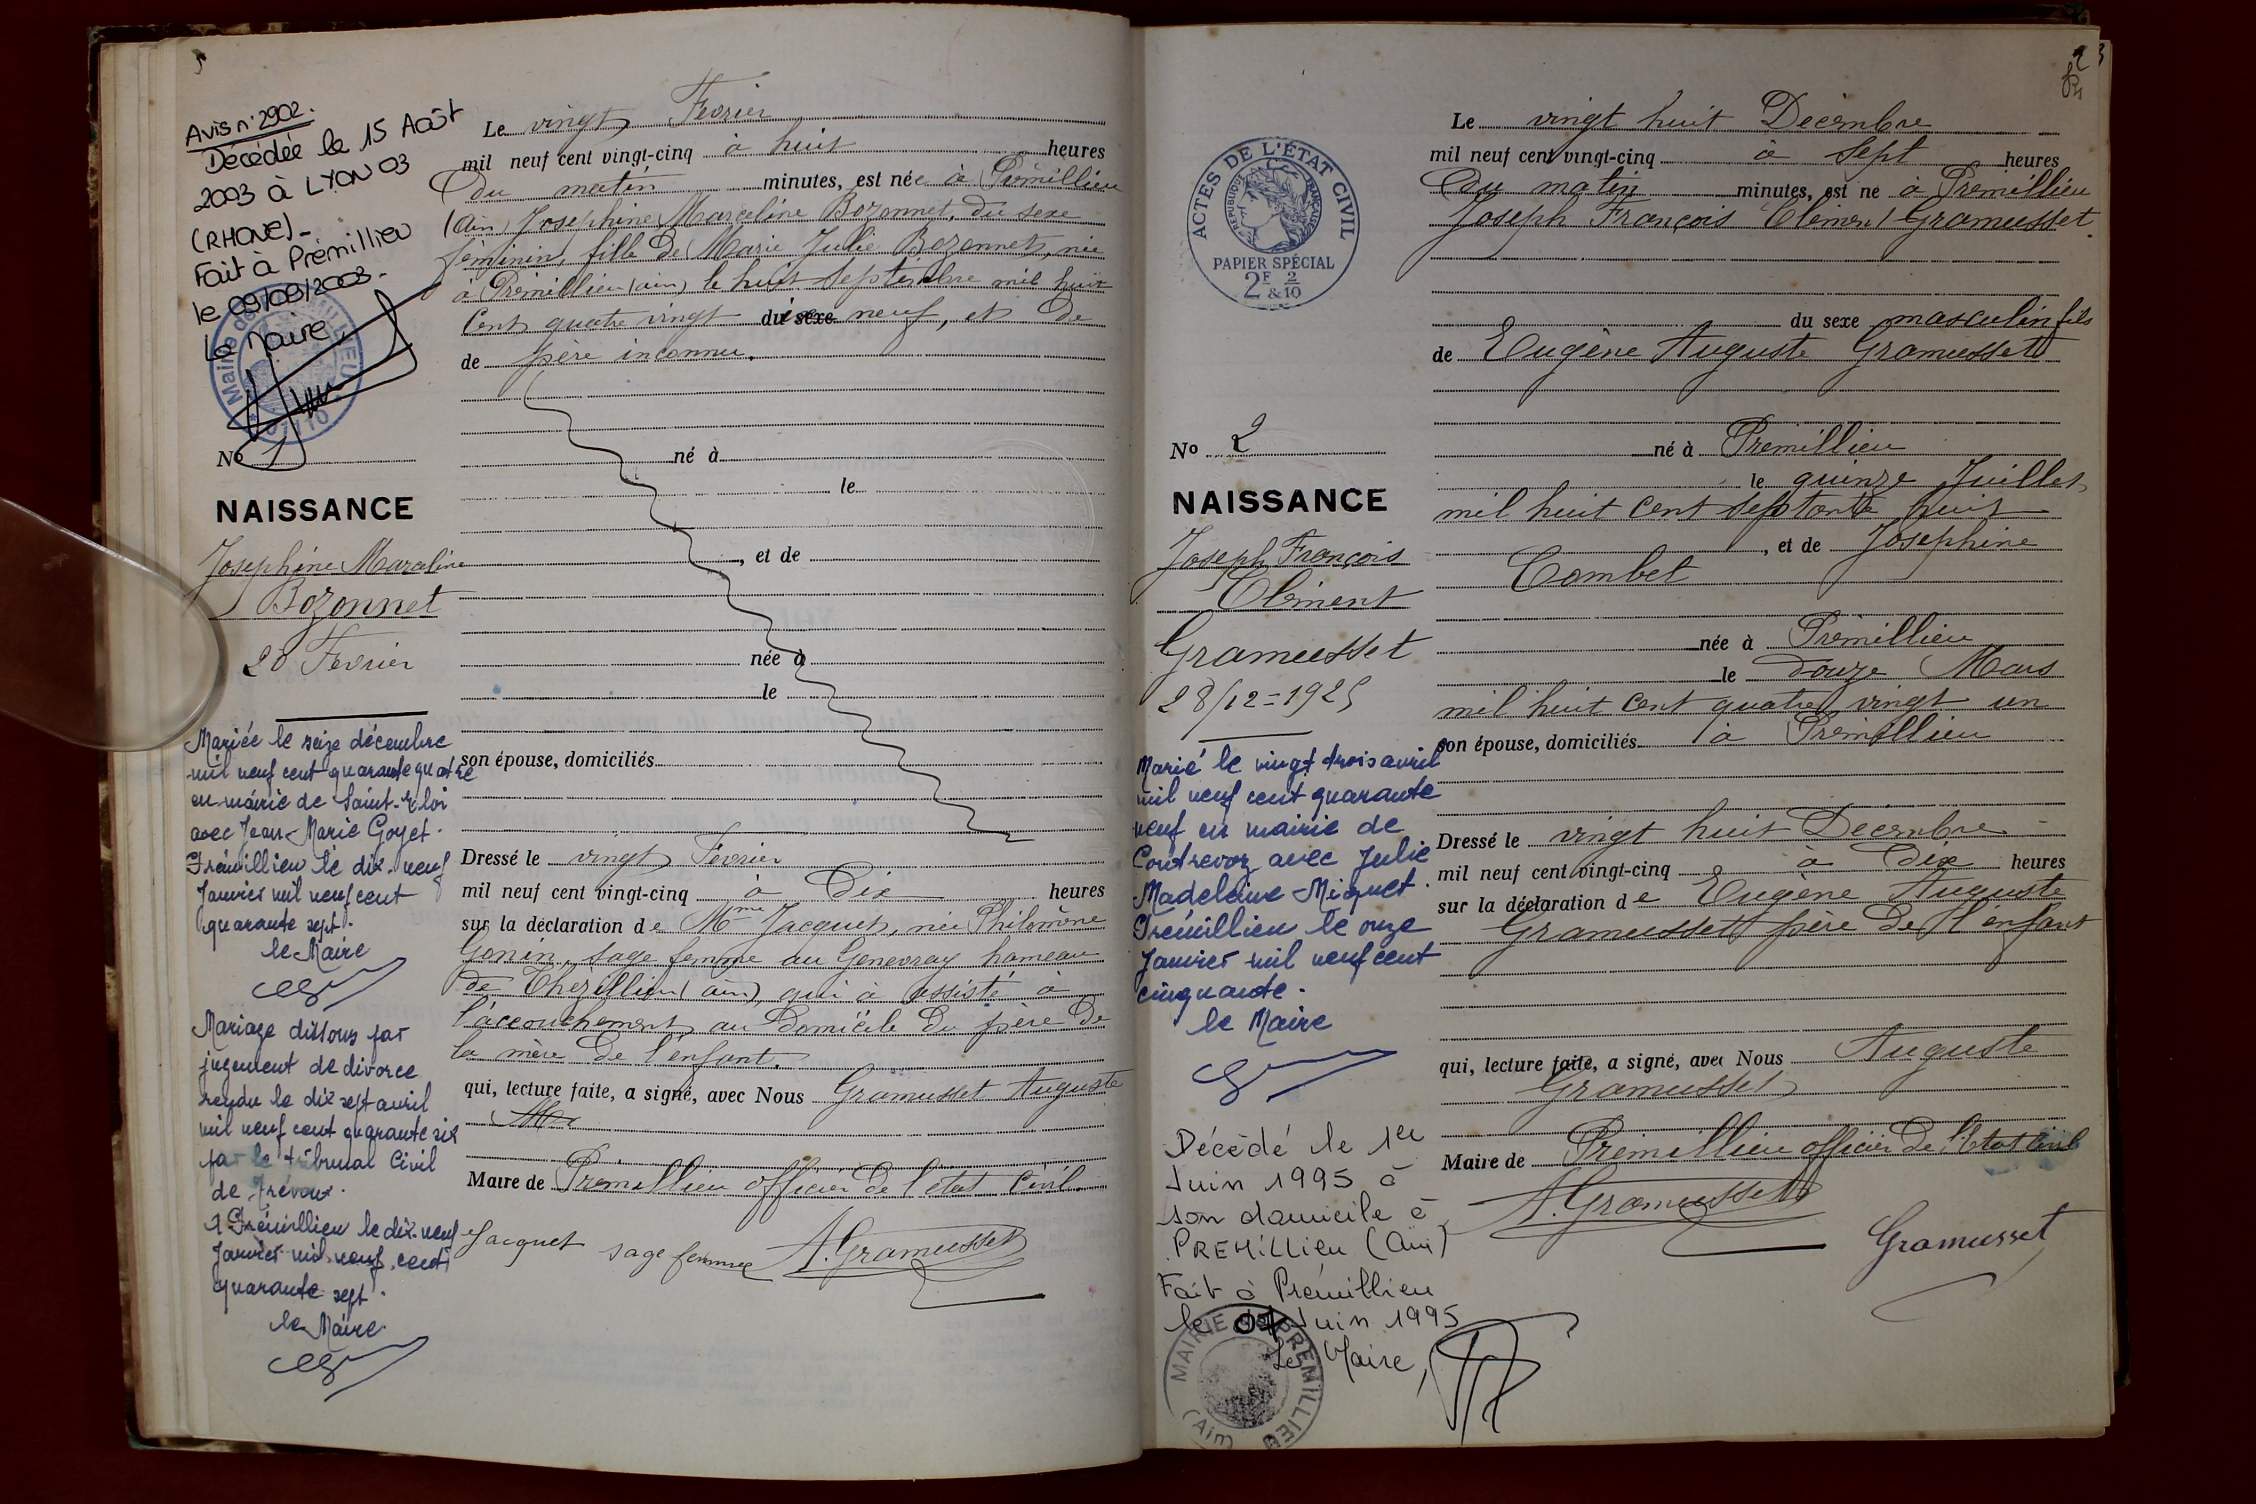 Avis n° 2902.
Décédée le 15 Août
2003 à LYON 03
(RHONE)-
Fait à Prémillieu
le 09/09/2003.
Le Maire
Mairie de PRÉMILLIEU
01110
No 1
NAISSANCE
Joséphine Marceline
Bozonnet
20 Fevrier
Mariée le seize décembre
mil neuf cent quarante quatre
en mairie de Saint-Eloi
avec Jean-Marie Goyet.
Prémillieu le dix-neuf
Janvier mil neuf cent
quarante sept.
le Maire
Mariage dissous par
jugement de divorce
rendu le dix sept avril
mil neuf cent quarante six
par le tribunal Civil
de Trévoux.
A Prémillieu le dix-neuf
Janvier mil neuf cent
quarante sept.
le Maire.
Le vingt Fevrier
mil neuf cent vingt-cinq à huit heures
Du matin minutes, est née à Prémillieu
(Ain) Josephine Marceline Bozonnet, du sexe
féminin, fille de Marie Julie Bozonnet, née
à Prémillieu (ain) le huit Septembre mil huit
Cent quatre vingt du sexe neuf, et de
de père inconnu.
né à
le
, et de
née à
le
son épouse, domiciliés
Dressé le vingt Fevrier
mil neuf cent vingt-cinq à Dix heures
sur la déclaration de Mme Jacquet, née Philomène
Gonin, sage femme au Genevray hameau
de Thezillieu (ain), qui à assisté à
l'accouchement au Domicile du père De
la mère De l'enfant.
qui, lecture faite, a signé, avec Nous Gramusset Auguste
Maire de Prémillieu officier De l'état Civil.
Jacquet sage femme A. Gramusset
2
ACTES DE L'ÉTAT CIVIL
RÉPUBLIQUE FRANÇAISE
PAPIER SPÉCIAL
2F & 2/10
No 2
NAISSANCE
Joseph François
Clément
Gramusset
28/12=1925
Marié le vingt trois avril
mil neuf cent quarante
neuf en mairie de
Contrevoz avec Julie
Madeleine Miguet.
Prémillieu le onze
Janvier mil neuf cent
cinquante.
le Maire
Décédé le 1er
Juin 1995 à
son domicile à
PREMILLIEU (Ain)
Fait à Prémillieu
le 07 Juin 1995
Le Maire,
MAIRIE DE PREMILLIEU
(Ain)
Le vingt huit Décembre
mil neuf cent vingt-cinq à Sept heures
Du matin minutes, est né à Prémillieu
Joseph François Clément Gramusset.
du sexe masculin fils
de Eugène Auguste Gramusset
né à Prémillieu
le quinze Juillet
mil huit cent septante huit
, et de Josephine
Combet
née à Prémillieu
le douze Mars
mil huit cent quatre vingt un
son épouse, domiciliés à Prémillieu
Dressé le vingt huit Décembre
mil neuf cent vingt-cinq à Dix heures
sur la déclaration de Eugène Auguste
Gramusset père De l'enfant
qui, lecture faite, a signé, avec Nous Auguste
Gramusset
Maire de Prémillieu officier De l'Etat Civil
A. Gramusset
Gramusset